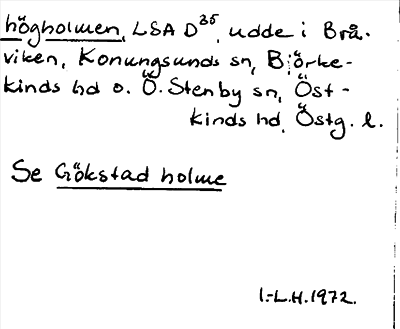 högholmen, LSA D35, udde i Brå-
viken, Konungsunds sn, Björke-
kinds hd o. Ö. Stenby sn, Öst-
kinds hd, Östg. l.
Se Gökstad holme
I.-L.H. 1972.